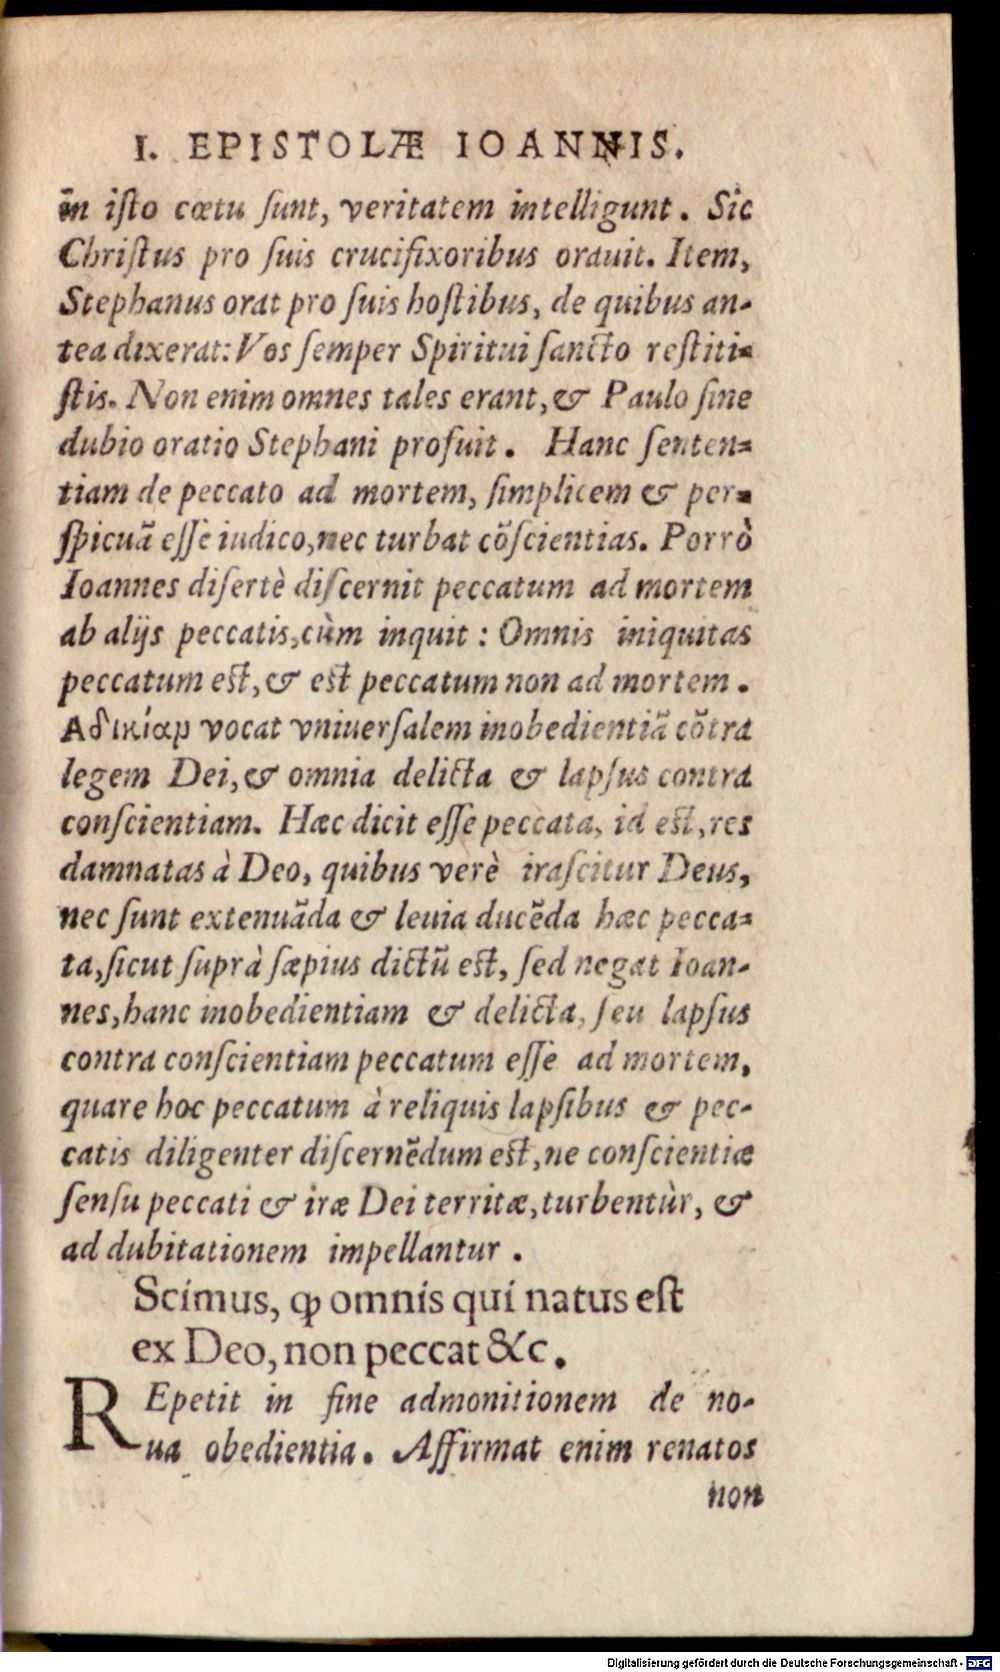 I. EPISTOLÆ IOANNIS.
in isto cœtu sunt, veritatem intelligunt. Sic
Christus pro suis crucifixoribus orauit. Item,
Stephanus orat pro suis hostibus, de quibus an-
tea dixerat: Vos semper Spiritui sancto restiti-
stis. Non enim omnes tales erant, & Paulo sine
dubio oratio Stephani profuit. Hanc senten-
tiam de peccato ad mortem, simplicem & per-
spicuã esse iudico, nec turbat cõscientias. Porrò
Ioannes disertè discernit peccatum ad mortem
ab alijs peccatis, cùm inquit: Omnis iniquitas
peccatum est, & est peccatum non ad mortem.
Αδικίαμ vocat vniuersalem inobedientiã cõtra
legem Dei, & omnia delicta & lapsus contra
conscientiam. Hæc dicit esse peccata, id est, res
damnatas à Deo, quibus verè irascitur Deus,
nec sunt extenuãda & leuia ducẽda hæc pecca-
ta, sicut suprà sæpius dictũ est, sed negat Ioan-
nes, hanc inobedientiam & delicta, seu lapsus
contra conscientiam peccatum esse ad mortem,
quare hoc peccatum à reliquis lapsibus & pec-
catis diligenter discernẽdum est, ne conscientiæ
sensu peccati & iræ Dei territæ, turbentùr, &
ad dubitationem impellantur.
Scimus, ꝙ omnis qui natus est
ex Deo, non peccat &c.
REpetit in fine admonitionem de no-
ua obedientia. Affirmat enim renatos
non
Digitalisierung gefördert durch die Deutsche Forschungsgemeinschaft - DFG